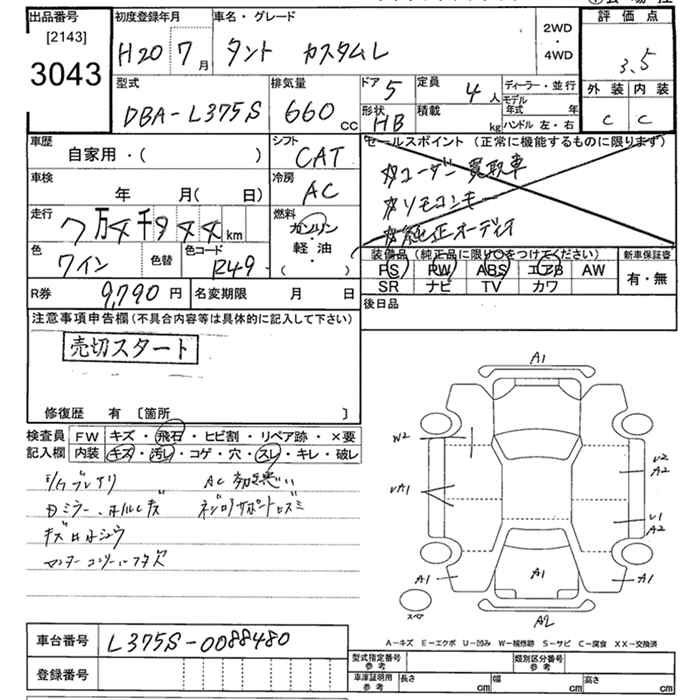 出品番号 初度登録年月 車名・グレード 評価点
[2143]
3043 H20 7月 タント カスタムL 2WD・4WD 3.5
型式 排気量 ドア 5 定員 4人 ディーラー・並行 外装 内装
DBA-L375S 660cc 形状 HB 積載 kg モデル年式 年 C C
ハンドル 左・右
車歴 シフト セールスポイント (正常に機能するものに限ります)
自家用・( ) CAT
買取車
車検 冷房 リモコンキー
年 月( 日) AC 純正オーディオ
走行 燃料
7万4千944km ガソリン・軽油
( )
色 色替 色コード 装備品(純正品に限り○をつけてください) 新車保証書
ワイン R49 PS PW ABS エアB AW 有・無
SR ナビ TV カワ
R券 9,790円 名変期限 月 日 後日品
注意事項申告欄(不具合内容等は具体的に記入して下さい)
売切スタート
修復歴 有 [箇所 ]
検査員 FW キズ・飛石・ヒビ割・リペア跡・×要
記入欄 内装 キズ・汚レ・コゲ・穴・スレ・キレ・破レ
AC
A1
W2
U2
A2
UA1
U1
A2
A1 A1 A1
スペア A2
A-キズ E-エクボ U-凹み W-補修跡 S-サビ C-腐食 XX-交換済
車台番号 L375S-0088480
登録番号
型式指定番号 参考 類別区分番号 参考
車庫証明用 参考 長さ cm 幅 cm 高さ cm